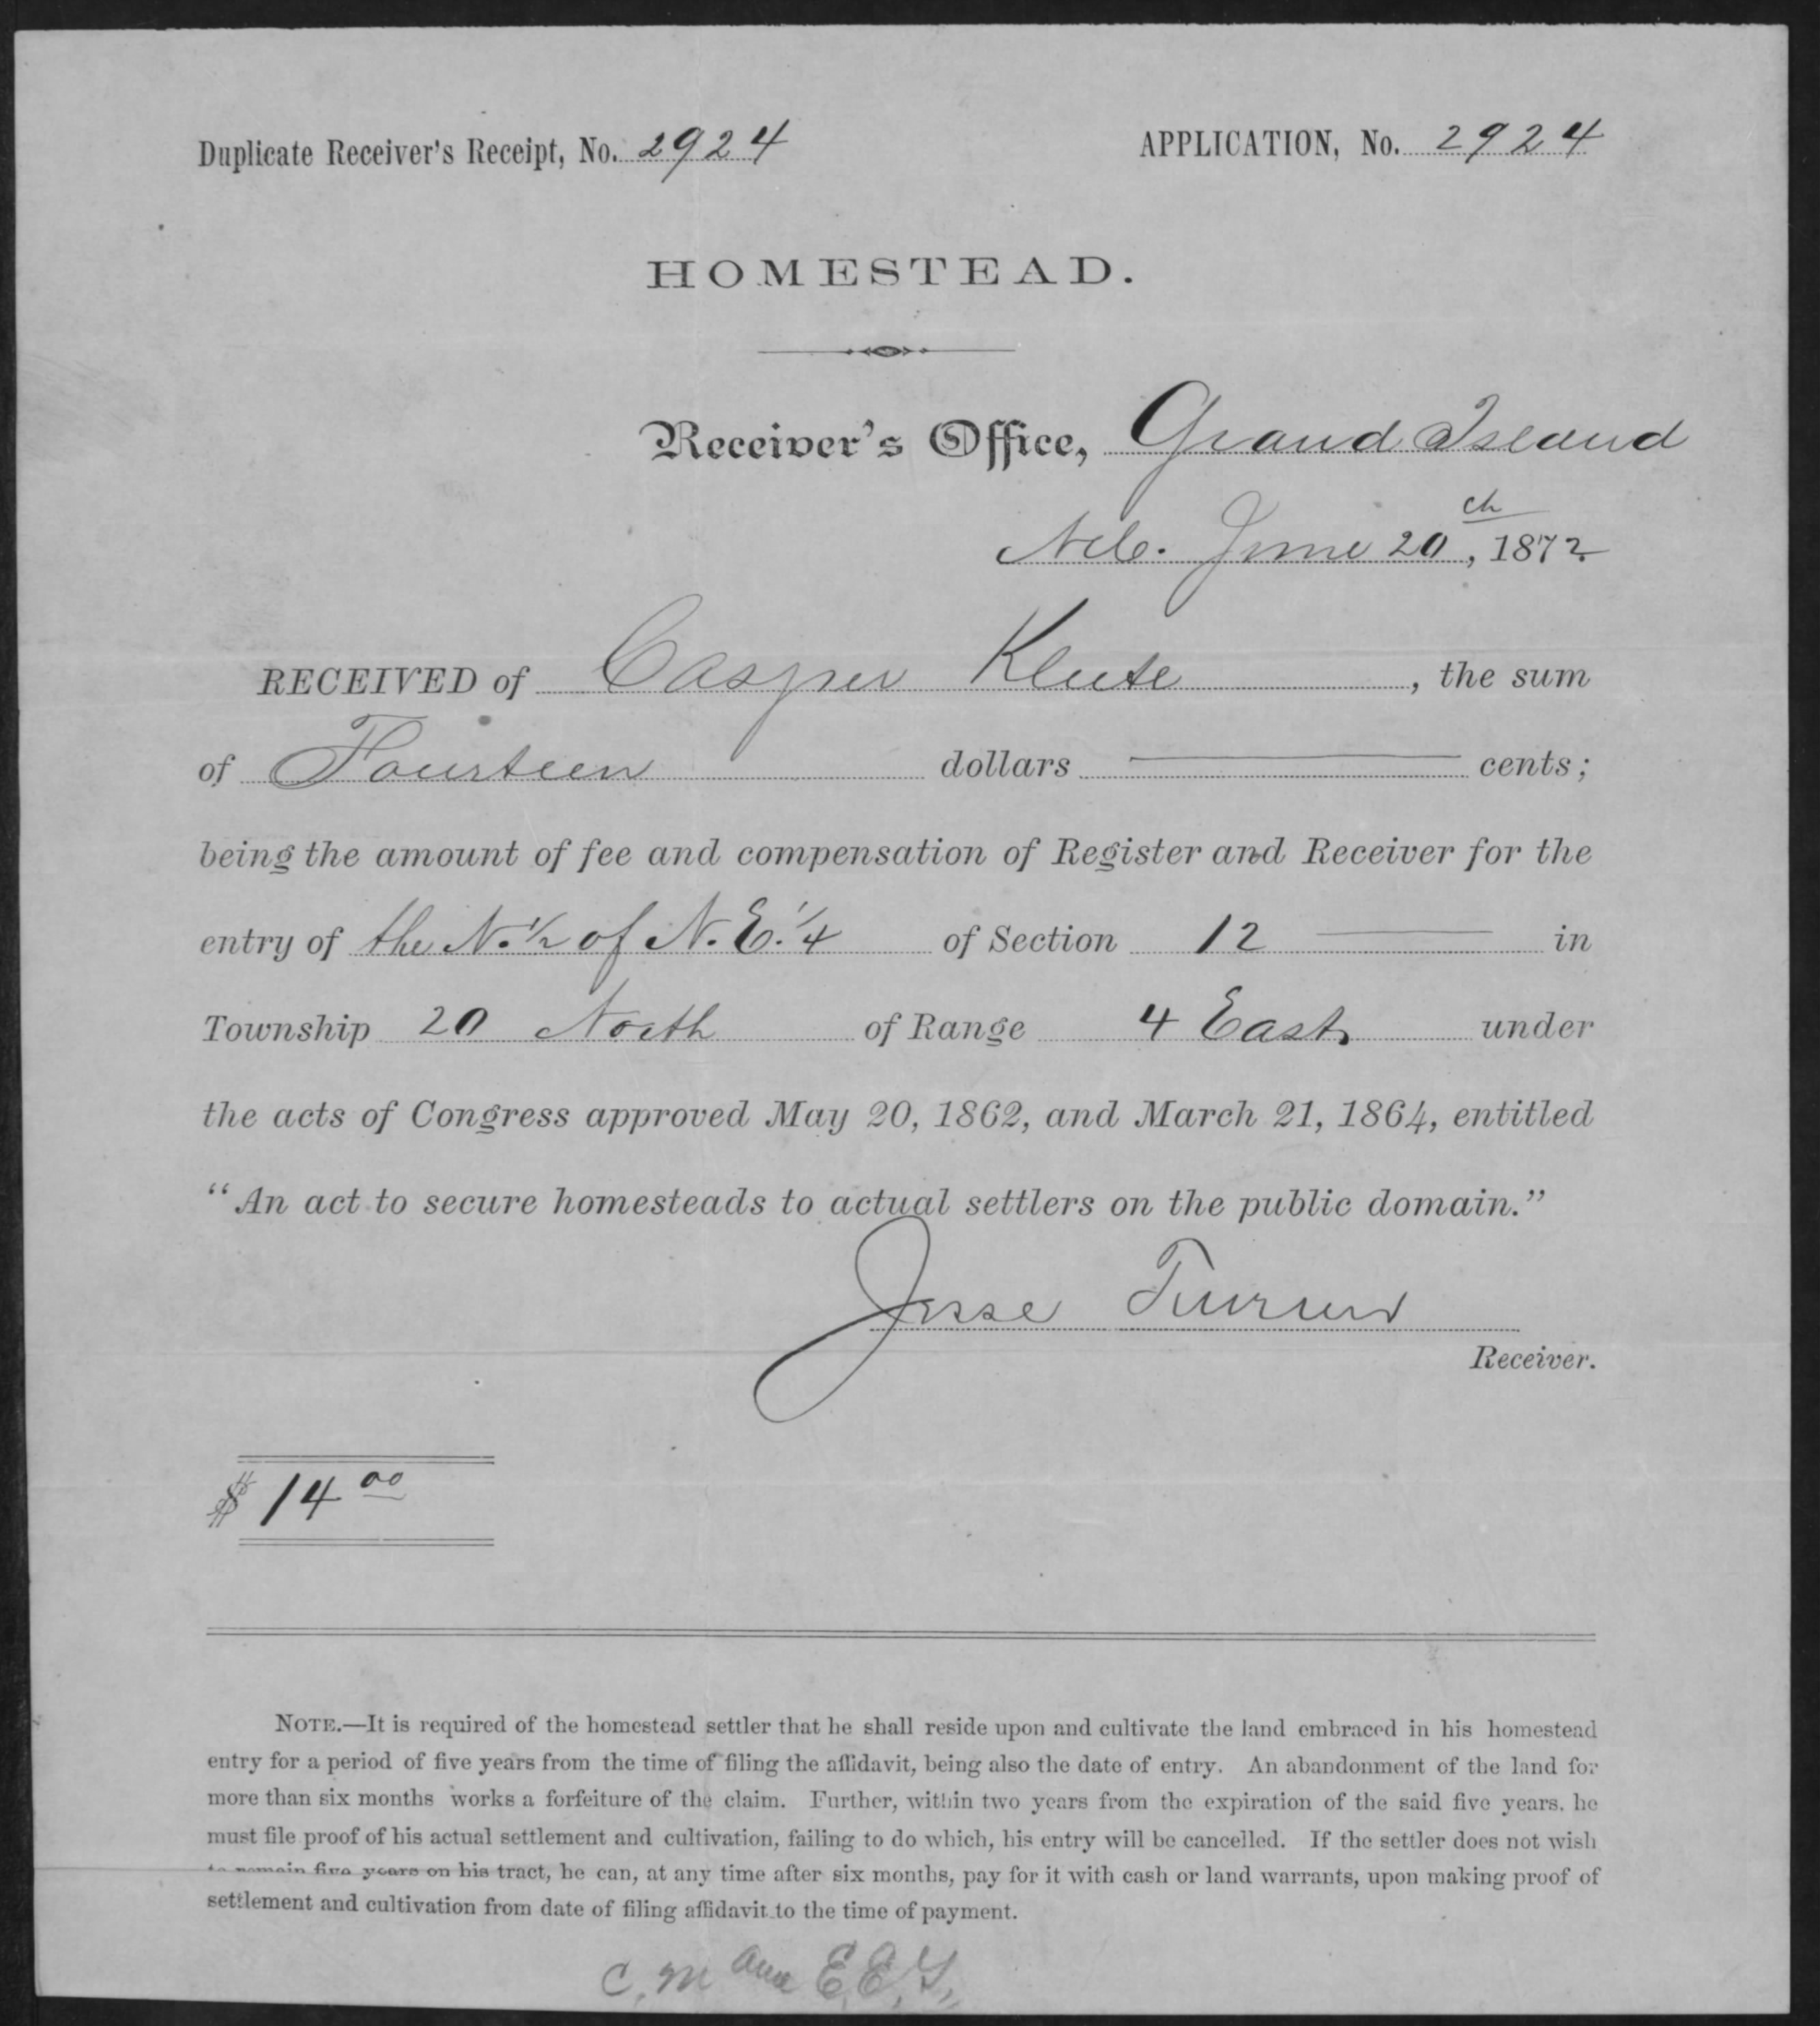 Duplicate Receiver's Receipt, No. 2924
APPLICATION, No. 2924
HOMESTEAD.
Receiver's Office, Grand Island
Neb. June 20th, 1872
RECEIVED of Casper Klute, the sum
of Fourteen dollars — cents;
being the amount of fee and compensation of Register and Receiver for the
entry of the N. 1/2 of N. E. 1/4 of Section 12 — in
Township 20 North of Range 4 East, under
the acts of Congress approved May 20, 1862, and March 21, 1864, entitled
“An act to secure homesteads to actual settlers on the public domain.”
Jesse Turner
Receiver.
$ 14 00
NOTE.—It is required of the homestead settler that he shall reside upon and cultivate the land embraced in his homestead
entry for a period of five years from the time of filing the affidavit, being also the date of entry. An abandonment of the land for
more than six months works a forfeiture of the claim. Further, within two years from the expiration of the said five years, he
must file proof of his actual settlement and cultivation, failing to do which, his entry will be cancelled. If the settler does not wish
to remain five years on his tract, he can, at any time after six months, pay for it with cash or land warrants, upon making proof of
settlement and cultivation from date of filing affidavit to the time of payment.
C. M